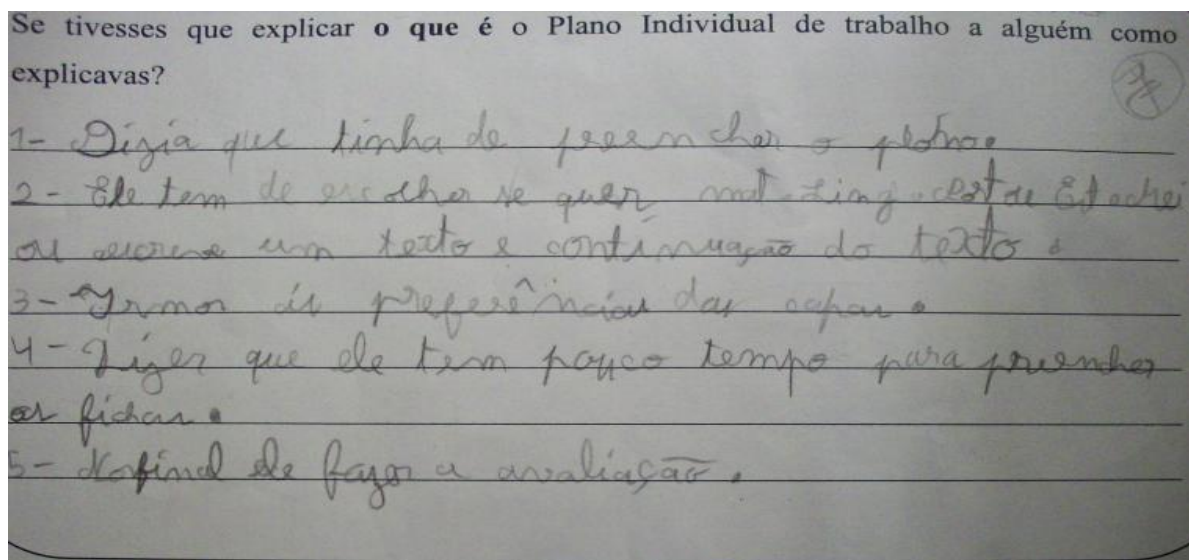 Se tivesses que explicar o que é o Plano Individual de trabalho a alguém como
explicavas?
1- Dizia que tinha de preencher o plano.
2- Ele tem de escolher se quer mat. Ling.
ou escreve um texto e continuação do texto.
3- Irmos ás preferências das capas.
4- Dizer que ele tem pouco tempo para preencher
as fichas.
5- No final ele fazer a avaliação.